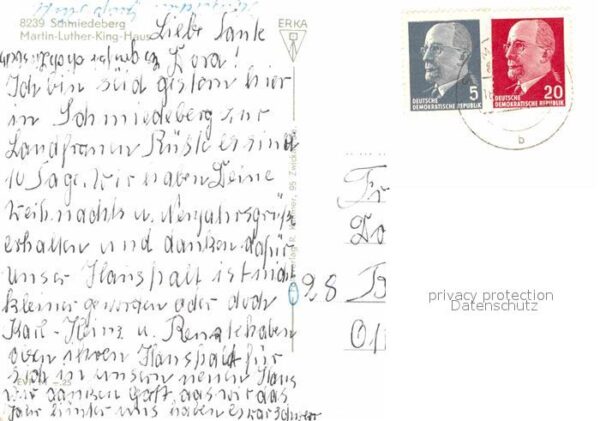 8239 Schmiedeberg
Martin-Luther-King-Haus
ERKA
Liebe Tante
Dora!
Ich bin süd gistern hier
in Schmiedeberg zur
Landfrauen Rüste er sind
10 Tage. Wir haben Deine
Weihnachts u. Neujahrsgrüße
erhalten und danken dafür
unser Haushalt ist nicht
kleiner geworden oder doch
Karl-Heinz u. Renate haben
oven ihren Haushalt für
sich in unsern neuen Haus
wir danken Gott, das wir das
Jahr hinter uns haben es war schwer
5
DEUTSCHE
DEMOKRATISCHE REPUBLIK
20
DEUTSCHE
DEMOKRATISCHE REPUBLIK
b
95 Zwickau
Fr
Do
028 B
privacy protection
Datenschutz